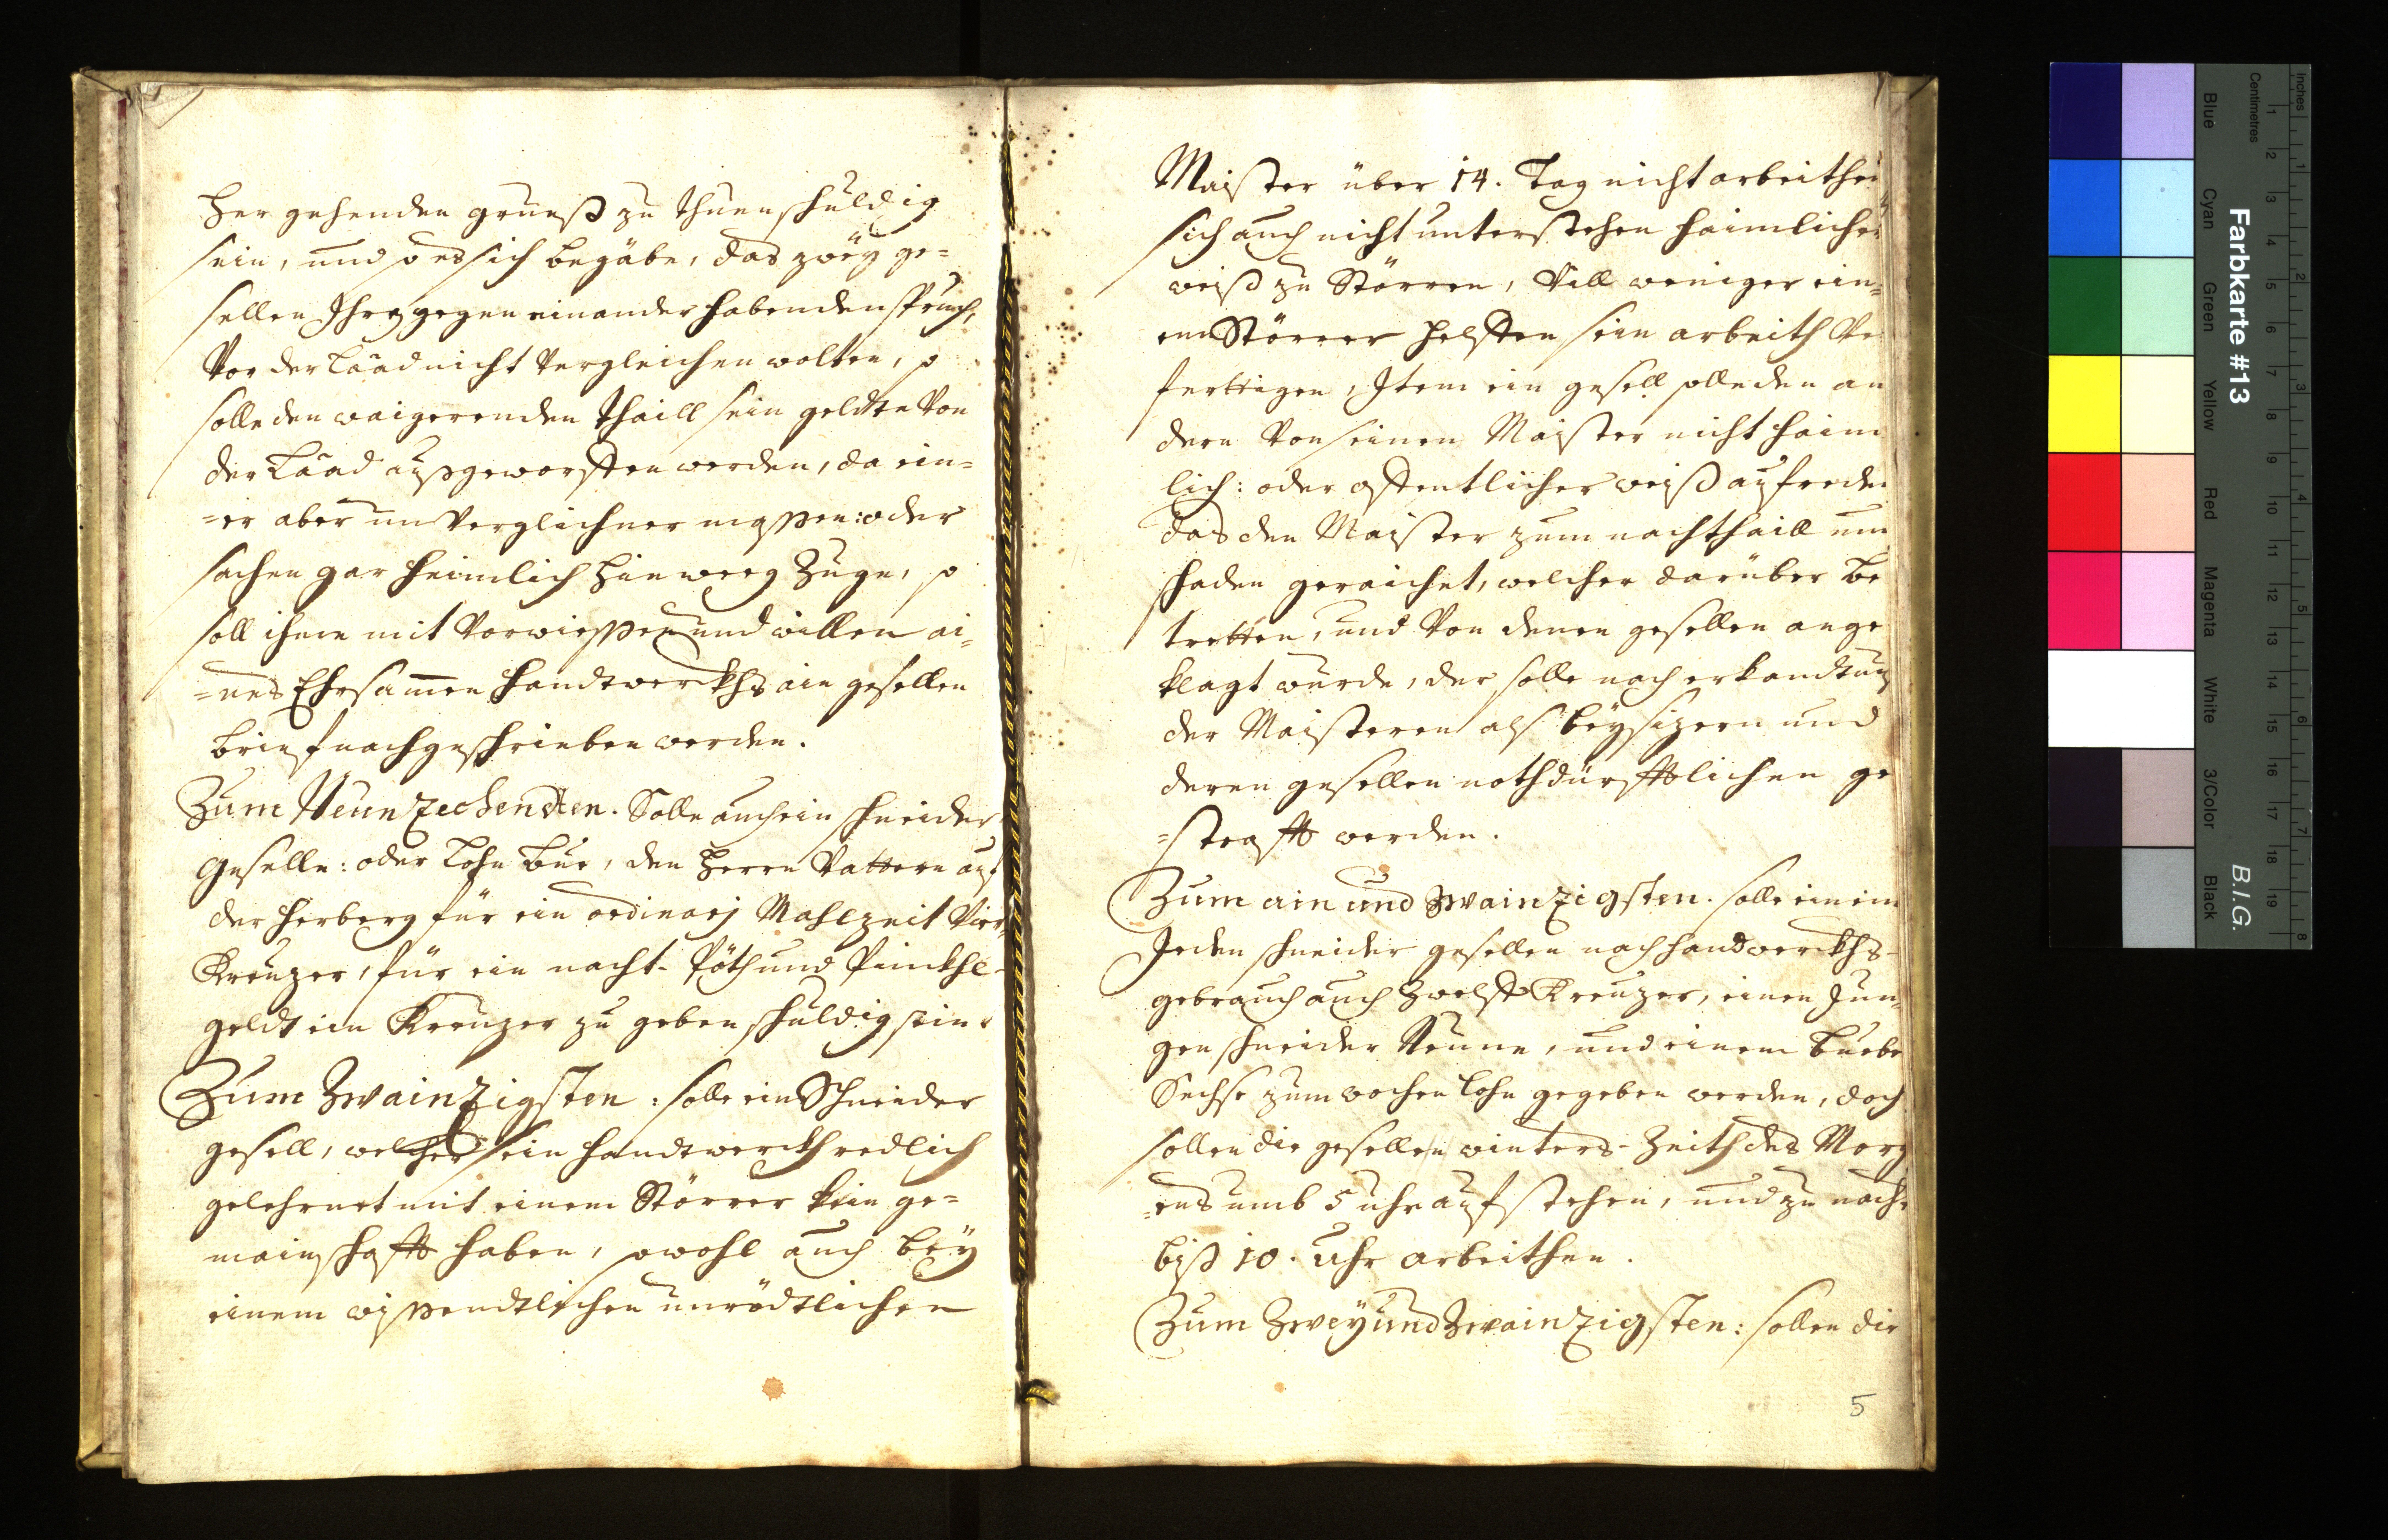 her gehenden grueß zu thuen schuldig
sein, und so es sich begäbe, das zwëy ge=
sellen Ihrg gegen einander habenden spruch,
Vor der Laad nicht Vergleichen wolten, so
solle den waigerenden thaill sein geldte Von
der Laad außgeworffen werden, da ein=
=er aber un Verglichner massen: oder
sachen gar heimlich hinweeg Zuge, so
soll ihme mit Vorwissen und willen ai=
=nes Ehrsamen handtwerckhs ain gesellen
brief nachgeschrieben werden.
Zum Neunzechendten. Solle auch ein schneider
Geselle: oder Lohn bue, den herrn Vattern auf
der herberg für ein ordinarj Mahlzeit Vier
Kreuzer, für ein nacht- Pöth und Pinckhl-
geldt ein Kreuzer zu geben schuldig sein.
Zum Zwainzigsten: solle ein Schneider
gesell, welcher sein handtwerckh redlich
gelehrnet mit einem Störrer kein ge=
mainschafft haben, sowohl auch beÿ
einem wissendtlichen unrödtlichen
Maister über 14. Tag nicht arbeithen
sich auch nicht unterstehen haimlicher
weiß zu Störren, Vill weniger ein=
em Störrer helffen sein arbeith Ver
ferttigen, Item ein gesell solle den an
dern Von seinen Maister nicht haim
lich: oder offentlicher weiß aufreden
das den Maister zum nachthaill und
schaden geraichet, welcher darüber be
tretten, und Von denen gesellen ange
klagt wurde, der solle nach erkandtnus
der Maisteren als beÿsizern und
deren gesellen nothdürfftlichen ge
=strafft werden.
Zum ain und zwainzigsten. solle einem
Jeden schneider gesellen nach handwerckhs-
gebrauch auch zwelff Kreuzer, einen Jun,
gen schneider Neune, und einem buebe
Sechse zum wochen lohn gegeben werden, doch
sollen die gesellen winters-Zeith des Morg
=ens umb 5 uhr aufstehen, und zu nachts
biß 10. uhr arbeithen.
Zum Zweÿ und Zwainzigsten: sollen die
5
Farbkarte #13
B.I.G.
Inches
Centimetres
Blue
Cyan
Green
Yellow
Red
Magenta
White
3/Color
Black